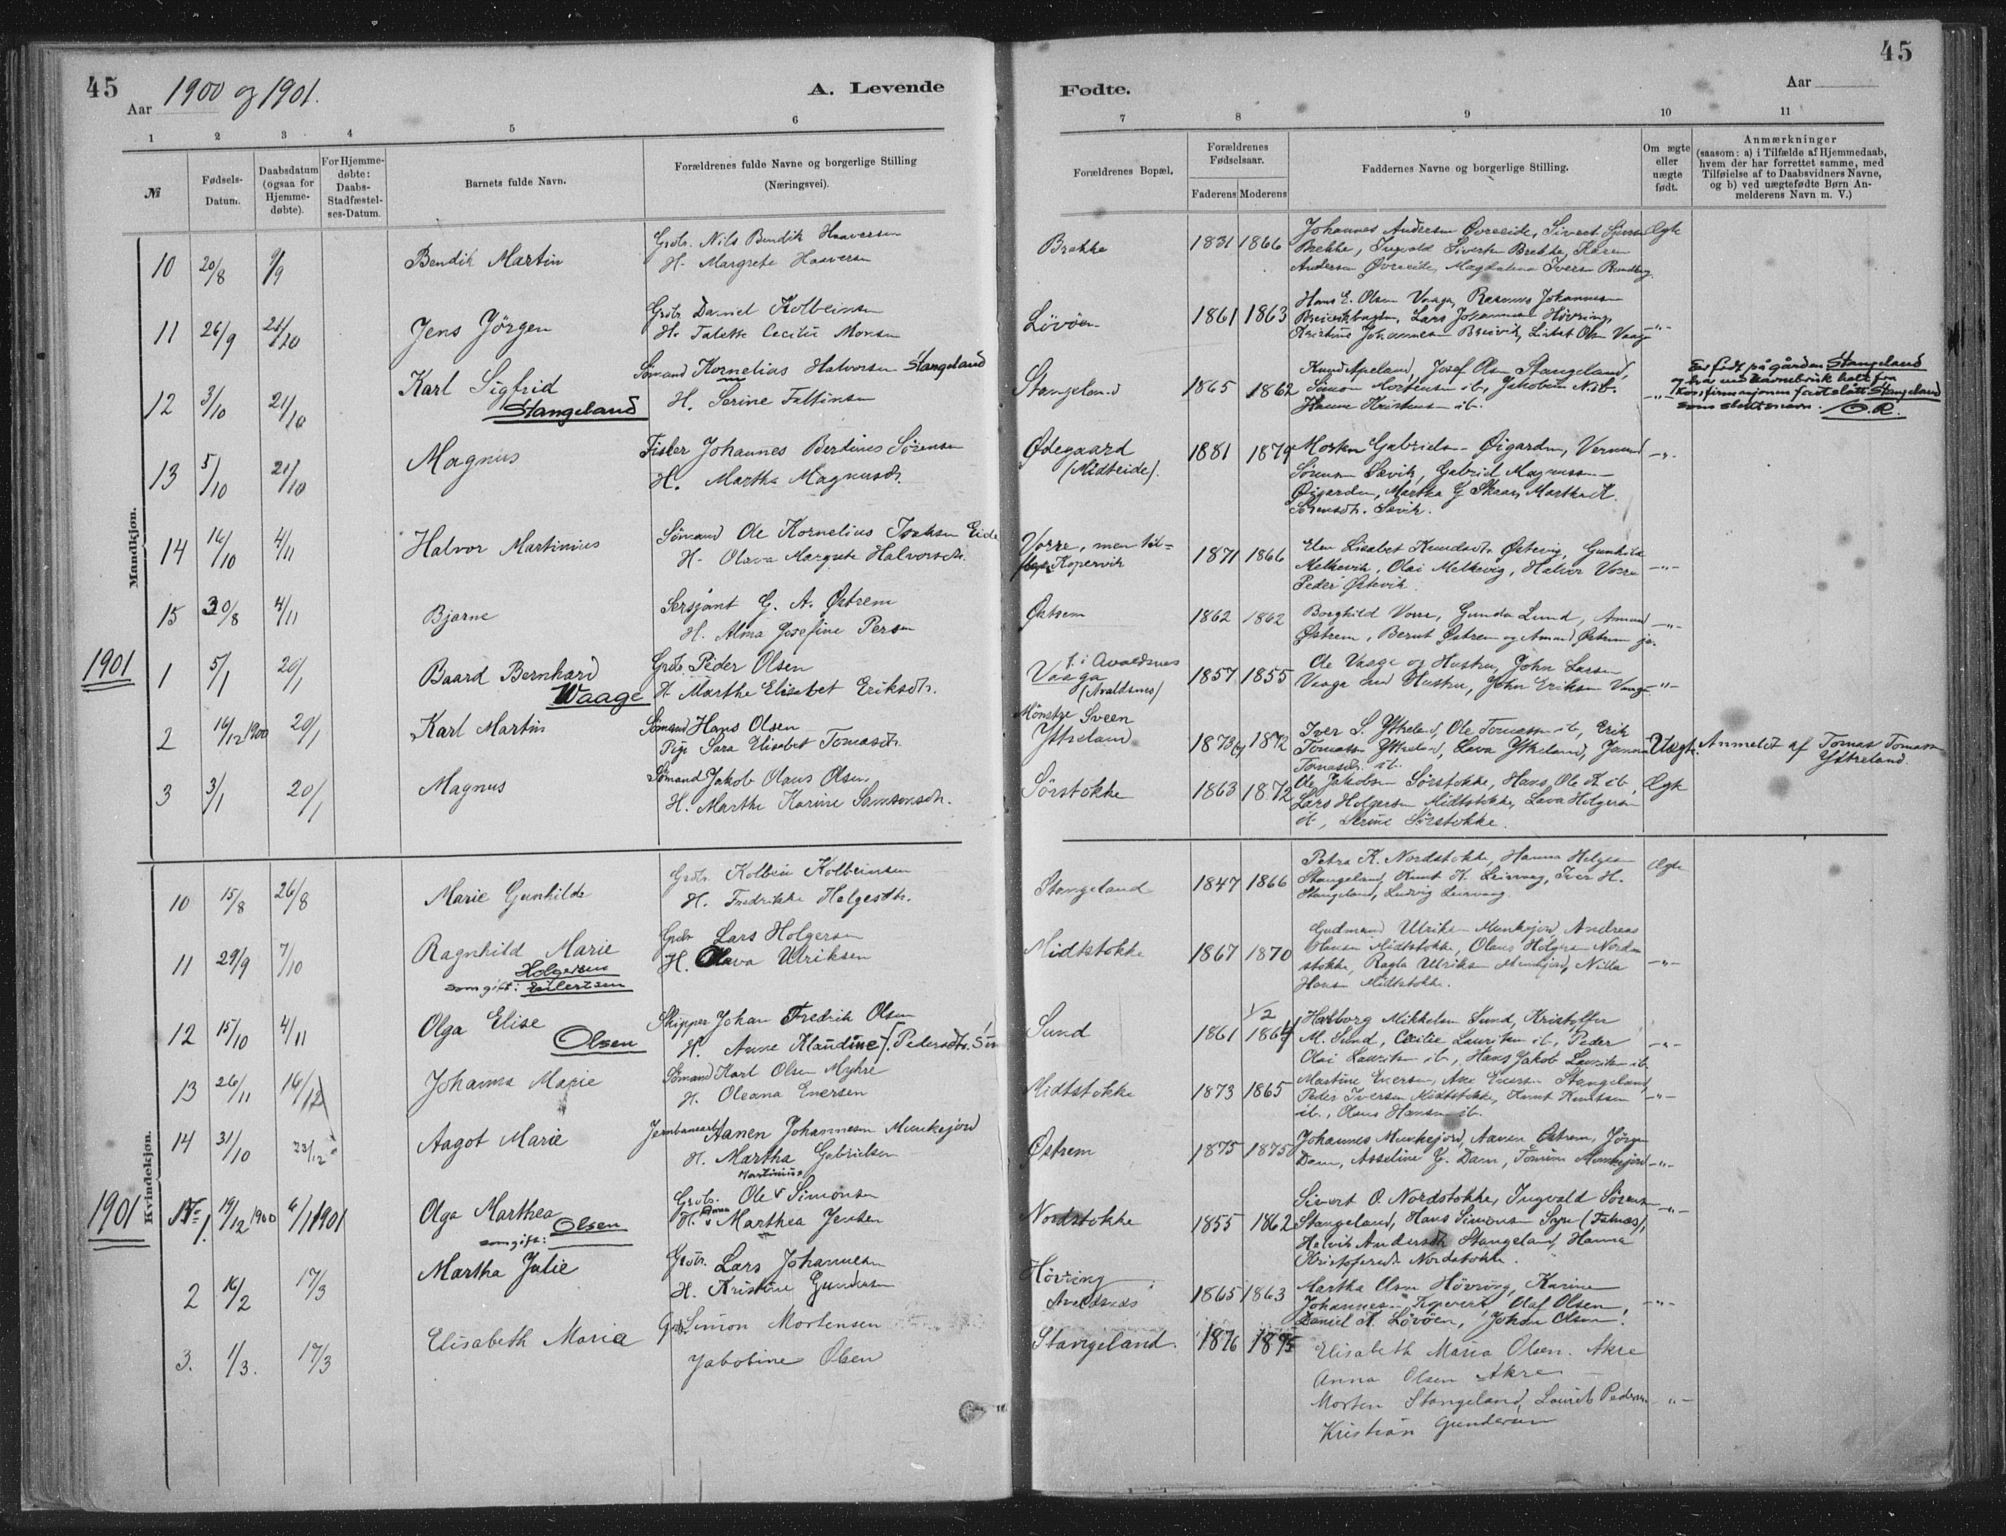 45
Aar 1900 og 1901.
A. Levende
Fødte.
Aar
45
1 2 3 4 5 6 7 8 9 10 11
№
Fødsels-Datum.
Daabsdatum (ogsaa for Hjemmedøbte).
For Hjemmedøbte: Daabs-Stadfæstelses-Datum.
Barnets fulde Navn.
Forældrenes fulde Navne og borgerlige Stilling (Næringsvei).
Forældrenes Bopæl.
Forældrenes Fødselsaar.
Faderens Moderens
Faddernes Navne og borgerlige Stilling.
Om ægte eller uægte født.
Anmærkninger (saasom: a) i Tilfælde af Hjemmedaab, hvem der har forrettet samme, med Tilføielse af to Daabsvidners Navne, og b) ved uægtefødte Børn Anmelderens Navn m. V.)
Mandkjøn.
10 20/8 9/9 Bendik Martin
Grdbr. Nils Bendik Haaversen
H. Margrete Haaversen
Brekke 1831 1866
Johannes Andersen Øvreeide, Sivert
Brekke, Ingvald Sivertsen Brekke, Karen
Andersen Øvreeide, Magdalena Iversen
Ægte
11 26/9 21/10 Jens Jörgen
Grdbr. Daniel Kolbeinsen
H. Talette Cecilie Monsen
Lövöen 1861 1863
Hans E. Olsen Vaaga, Rasmus Johannesen
Lars Johannesen Hövring,
Kristine Johannesen Breivik, Lisbet Olsen Vaage
-"-
12 3/10 21/10 Karl Sigfrid
Stangeland
Sömand Kornelius Halvorsen Stangeland
H. Serine Faltinsen
Stangeland 1865 1862
Knud Apeland, Josef Olsen Stangeland,
Simon Mortensen ib., Jakobine
Hanne Kristensen ib.
-"-
Er født på gården Stangeland
og har
konfirmasjonen Stangeland
som slektsnavn. O.R.
13 5/10 21/10 Magnus
Fisker Johannes Berdines Sörensen
H. Martha Magnusdtr.
Ødegaard
(Midteide).
1881 1879
Morten Gabrielsen Øigarden, Vernund
Sörensen Sævik, Gabriel Magnussen
Øigarden, Martha G Skaar, Martha K.
Sörensdtr. Sævik.
-"-
14 16/10 4/11 Halvor Martinius
Sömand Ole Kornelius Isaksen Eide
H. Olava Margrete Halvorsdtr.
Vorre, men til-
Kopervik
1871 1866
Elen Lisabet Knudsdtr. Østevig, Gunhild
Melkevik, Olai Melkevig, Halvor Vorre
Peder Østevik.
-"-
15 30/8 4/11 Bjarne
Sersjant G. A. Østrem
H. Alma Josefine Persen
Østrem 1862 1862
Borghild Vorre, Gunda Lund, Amund
Østrem, Bernt Østrem og Amund Østrem jr.
-"-
1901
1 5/1 20/1 Baard Bernhard
Waage
Grdbr. Peder Olsen
H. Marthe Elisabet Eriksdtr.
f. i Avaldsnes
Vaaga
(Avaldsnes)
1857 1855
Ole Vaage og Hustru, John Larsen
Vaaga med Hustru, John Eriksen Vaage
-"-
2 16/12 1900 20/1 Karl Martin
Sömand Hans Olsen
Pige Sara Elisabet Tomasdtr.
Mönstre Sveen
Ytreland
1873 1872
Iver S. Ytreland, Ole Tomassen ib., Erik
Tomassen Ytreland, Lava Ytreland, Janna
Tomasdtr. ib.
Uægte.
Anmeldt af Tomas Tomassen
Ytreland.
3 3/1 20/1 Magnus
Sömand Jakob Olaus Olsen
H. Marthe Karine Samsonsdtr.
Sörstokke 1863 1872
Ole Jakobsen Sörstokke, Hans Ole K ib,
Lars Holgersen Midtstokke, Lava Holgersen
ib, Serine Sörstokke.
Ægte
Kvindekjøn.
10 15/8 26/8 Marie Gunhilde
Grdbr. Kolbein Kolbeinsen
H. Fredrikke Helgesdtr.
Stangeland 1847 1866
Petra K. Nordstokke, Hanna Helgesen
Stangeland, Knut H. Leirvaag, Iver H.
Stangeland, Ludvig Leirvaag
Ægte
11 29/9 7/10 Ragnhild Marie
Holgersen
som gift: Eilertsen
Grdbr. Lars Holgersen
H. Olava Ulriksen
Midtstokke 1867 1870
Gudmund Ulriksen Munkejord, Andreas
Hansen Midtstokke, Olaus Holgersen Nord-
stokke, Ragla Ulriksen Munkejord, Nilla
Hansen Midtstokke.
-"-
12 15/10 4/11 Olga Elise
Olsen
Skipper Johan Fredrik Olsen
H. Anne Klaudine f. Pedersdtr.
Sund 1861 1/2 1864
Halborg Mikkelsen Sund, Kristoffer
M. Sund, Cecilie Lauritsen ib, Peder
Olai Lauritsen ib, Hans Jakob Lauritsen ib.
-"-
13 26/11 16/12 Johanna Marie
Sömand Karl Olsen Myhre
H. Oleana Enersen
Midtstokke 1873 1865
Martine Enersen, Ase Enersen Stangeland,
Peder Iversen Midtstokke, Knut Knutsen
ib., Olaus Hansen ib.
-"-
14 31/10 23/12 Aagot Marie
Jernbanearb. Aanen Johannesen Munkejord
H. Martha Gabrielsen
Østrem 1875 1875
Johannes Munkejord, Aanen Østrem, Jörgen
Dam, Asseline G. Dam, Tomine Munkejord
-"-
1901
1. 19/12 1900 6/1 1901 Olga Marthea
som gift: Olsen
Martinius
Grdbr. Ole Simonsen
H. Anna Marthea Jensen
Nordstokke 1855 1862
Sivert O. Nordstokke, Ingvald Sörensen
Stangeland, Hans Simonsen Syre (Falnæs),
Helvik Andersdtr Stangeland, Hanna
Kristofersdtr. Nordstokke.
-"-
2 16/2 17/3 Martha Julie
Grdbr. Lars Johannesen
H. Kristine Gundersen
Hövring
Avaldsnæs
1865 1863
Martha Olsen Hövring, Karine
Johannesen Kopervik, Olaf Olsen,
Daniel K. Lövöen, Johan Olsen.
-"-
3. 1/3. 17/3 Elisabeth Maria
Grdb. Simon Mortensen
Jabobine Olsen
Stangeland. 1876 1875
Elisabeth Maria Olsen. Akre
Anna Olsen Akre
Morten Stangeland, Laurits Pedersen
Kristian Gundersen
-"-